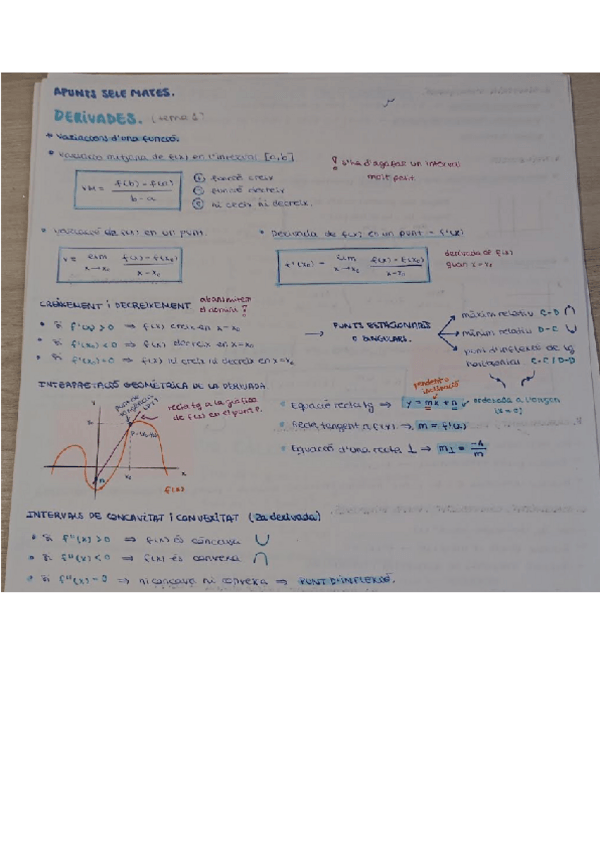 APUNTS SELE MATES.
DERIVADES. (tema 1)
* Variacions d'una funció:
• Variació mitjana de f(x) en l'interval [a,b]
VM = f(b) - f(a) / b - a
⊕ funció creix
⊖ funció decreix
⓪ ni creix ni decreix.
! S'ha d'agafar un interval
molt petit.
• Variació de f(x) en un punt.
V = lim x→x₀ f(x) - f(x₀) / x - x₀
• Derivada de f(x) en un punt = f'(x)
f'(x₀) = lim x→x₀ f(x) - f(x₀) / x - x₀
derivada de f(x)
quan x = x₀
CREIXEMENT I DECREIXEMENT
• Si f'(x₀) > 0 ⇒ f(x) creix en x=x₀
• Si f'(x₀) < 0 ⇒ f(x) decreix en x=x₀
• Si f'(x₀) = 0 ⇒ f(x) ni creix ni decreix en x=x₀
→ PUNTS ESTACIONARIS
O SINGULARS.
màxim relatiu C-D ∩
mínim relatiu D-C ∪
punt d'inflexió de tg
horitzontal C-C / D-D
INTERPRETACIÓ GEOMÈTRICA DE LA DERIVADA
recta tg a la gràfica
de f(x) en el punt P.
y
x
x₀
f(x)
pendent o
inclinació
• Equació recta tg ⇒ y = mx + n
ordenada a l'origen
(x = 0)
• Recta tangent a f(x) ⇒ m = f'(x)
• Equació d'una recta ⊥ ⇒ m⊥ = -1 / m
INTERVALS DE CONCAVITAT I CONVEXITAT (2a derivada)
• Si f''(x) > 0 ⇒ f(x) és còncava ∪
• Si f''(x) < 0 ⇒ f(x) és convexa ∩
• Si f''(x) = 0 ⇒ ni còncava ni convexa ⇒ PUNT D'INFLEXIÓ.